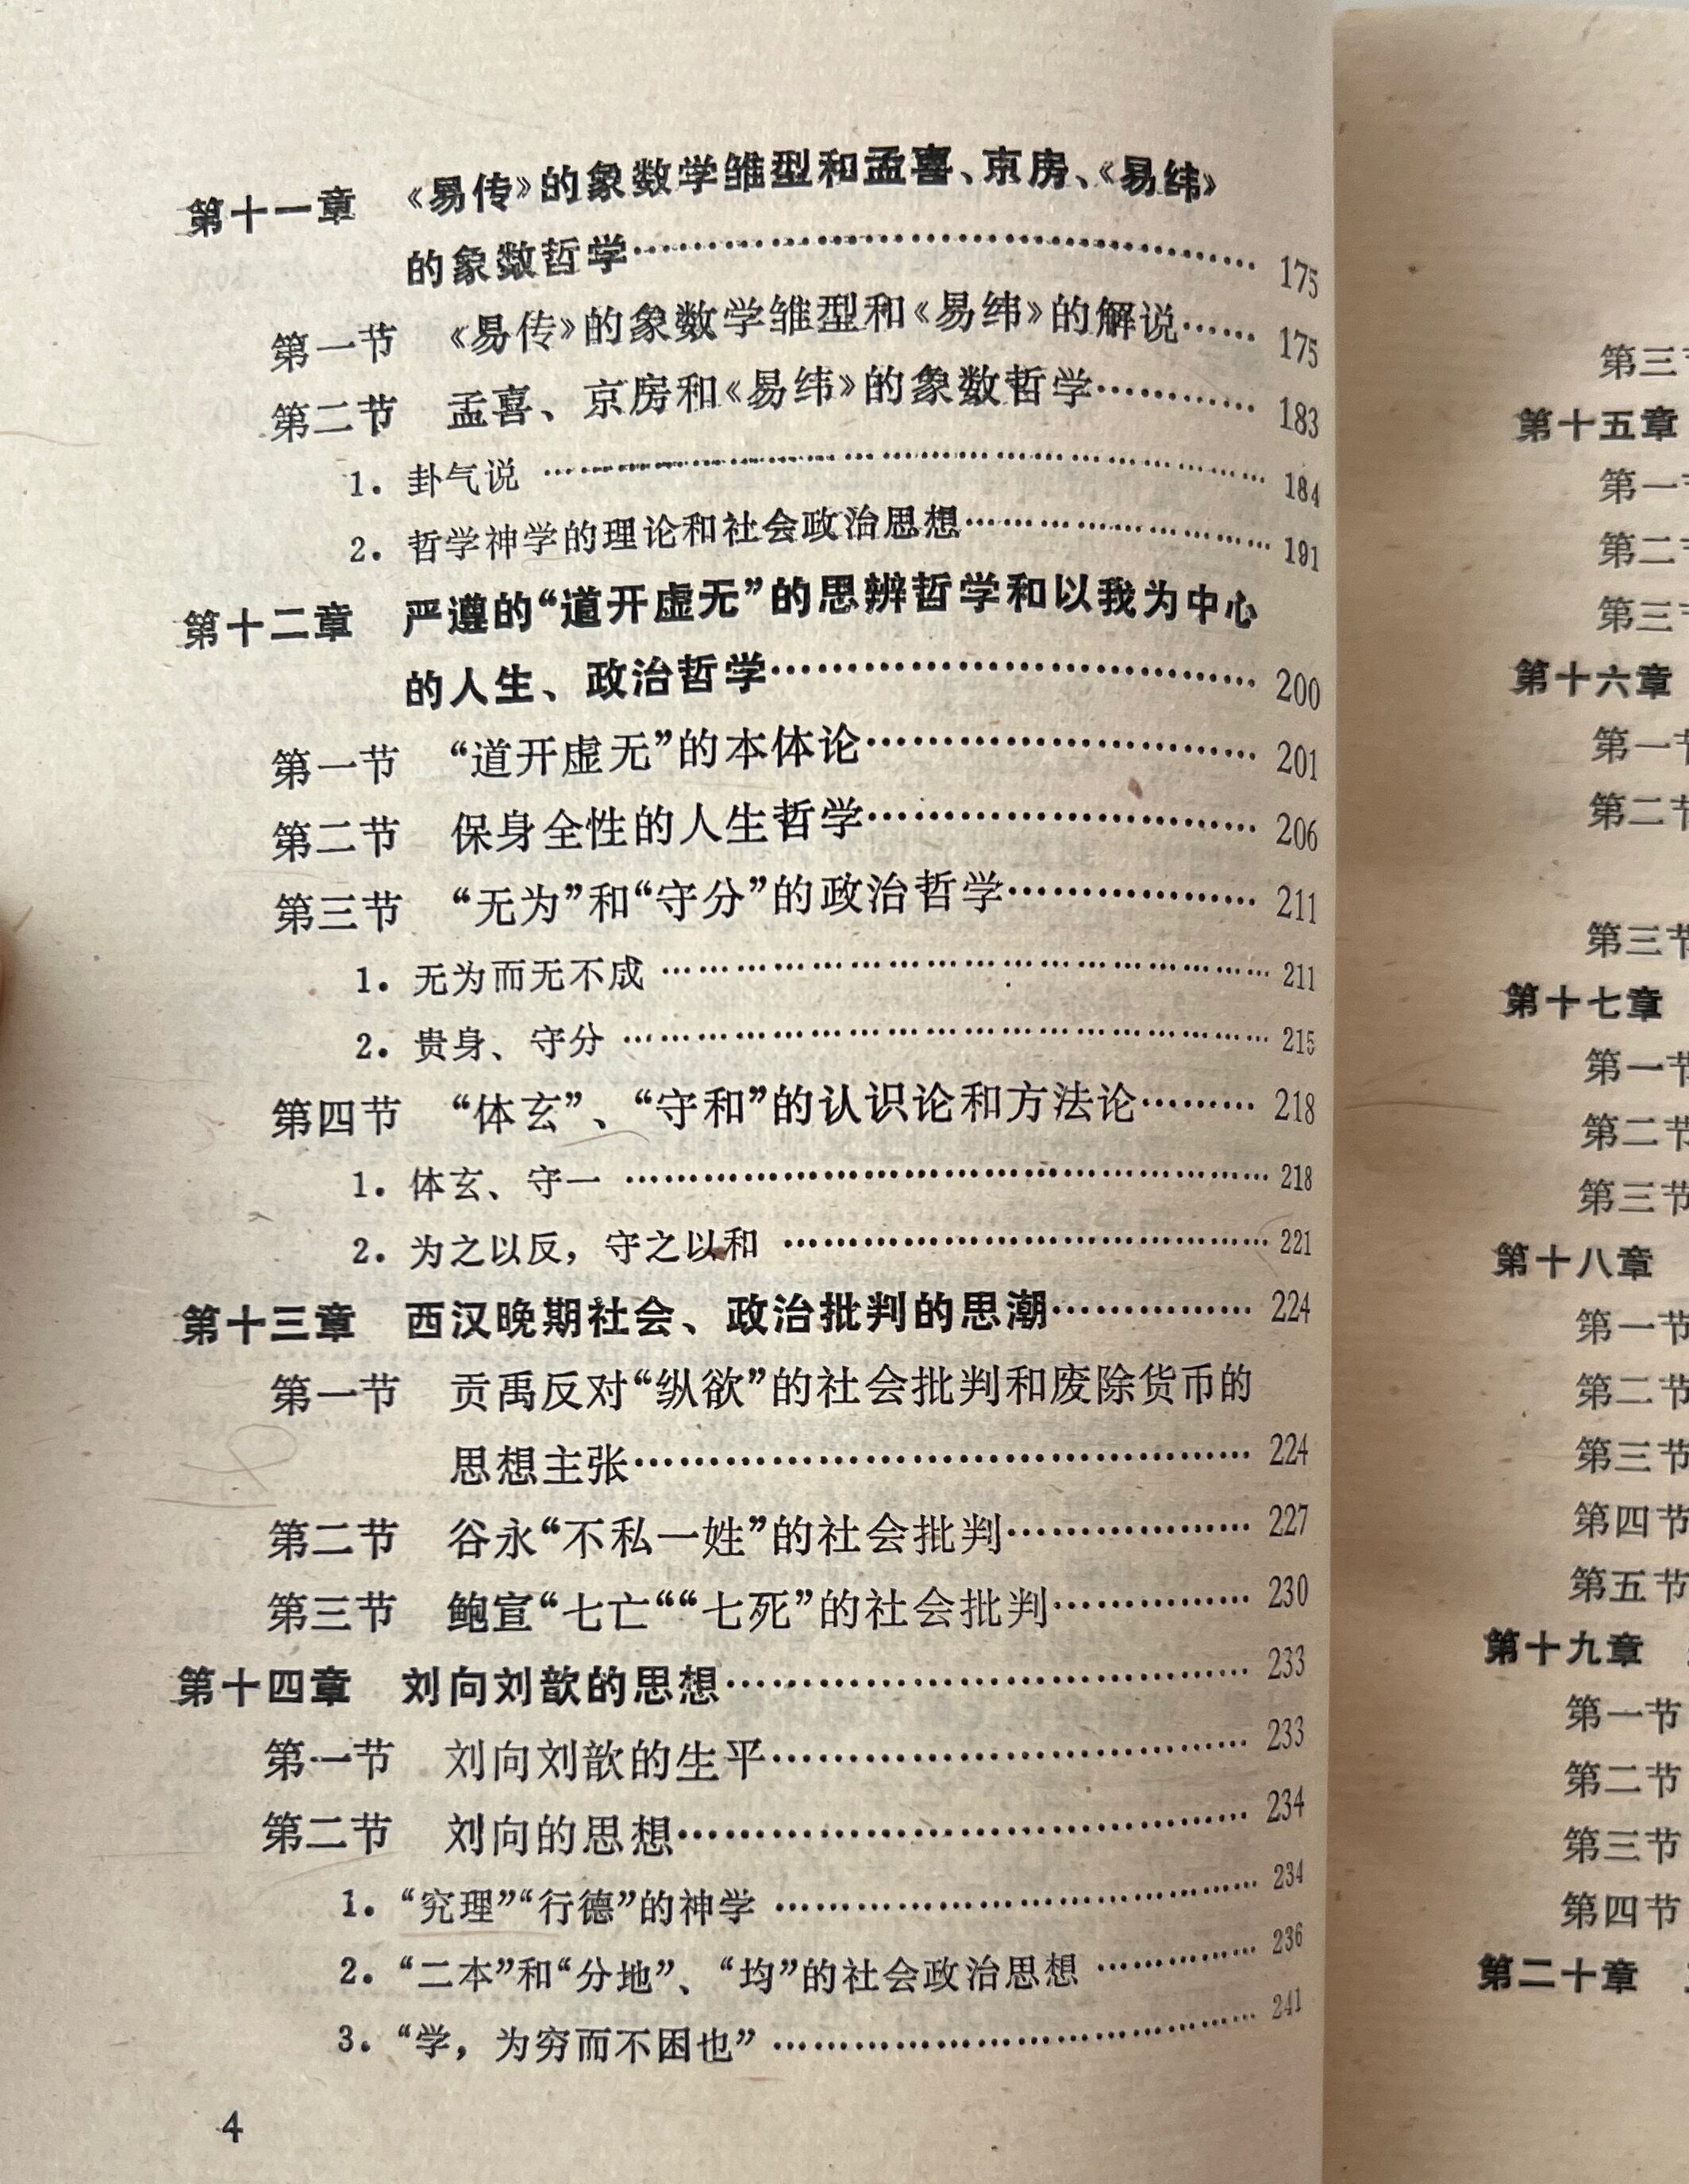 第十一章 《易传》的象数学雏型和孟喜、京房、《易纬》
的象数哲学………………………………… 175
第一节 《易传》的象数学雏型和《易纬》的解说…… 175
第二节 孟喜、京房和《易纬》的象数哲学………… 183
1. 卦气说 ………………………………………… 184
2. 哲学神学的理论和社会政治思想………………… 191
第十二章 严遵的“道开虚无”的思辨哲学和以我为中心
的人生、政治哲学………………………… 200
第一节 “道开虚无”的本体论…………………… 201
第二节 保身全性的人生哲学…………………… 206
第三节 “无为”和“守分”的政治哲学……………… 211
1. 无为而无不成 ………………………………… 211
2. 贵身、守分 …………………………………… 215
第四节 “体玄”、“守和”的认识论和方法论……… 218
1. 体玄、守一 …………………………………… 218
2. 为之以反，守之以和 ………………………… 221
第十三章 西汉晚期社会、政治批判的思潮………… 224
第一节 贡禹反对“纵欲”的社会批判和废除货币的
思想主张……………………………… 224
第二节 谷永“不私一姓”的社会批判……………… 227
第三节 鲍宣“七亡““七死”的社会批判…………… 230
第十四章 刘向刘歆的思想………………………… 233
第一节 刘向刘歆的生平……………………… 233
第二节 刘向的思想…………………………… 234
1. “究理”“行德”的神学 ………………………… 234
2. “二本”和“分地”、“均”的社会政治思想 ……… 236
3. “学，为穷而不困也” ………………………… 241
4
第三节
第十五章
第一节
第二节
第三节
第十六章
第一节
第二节
第三节
第十七章
第一节
第二节
第三节
第十八章
第一节
第二节
第三节
第四节
第五节
第十九章
第一节
第二节
第三节
第四节
第二十章